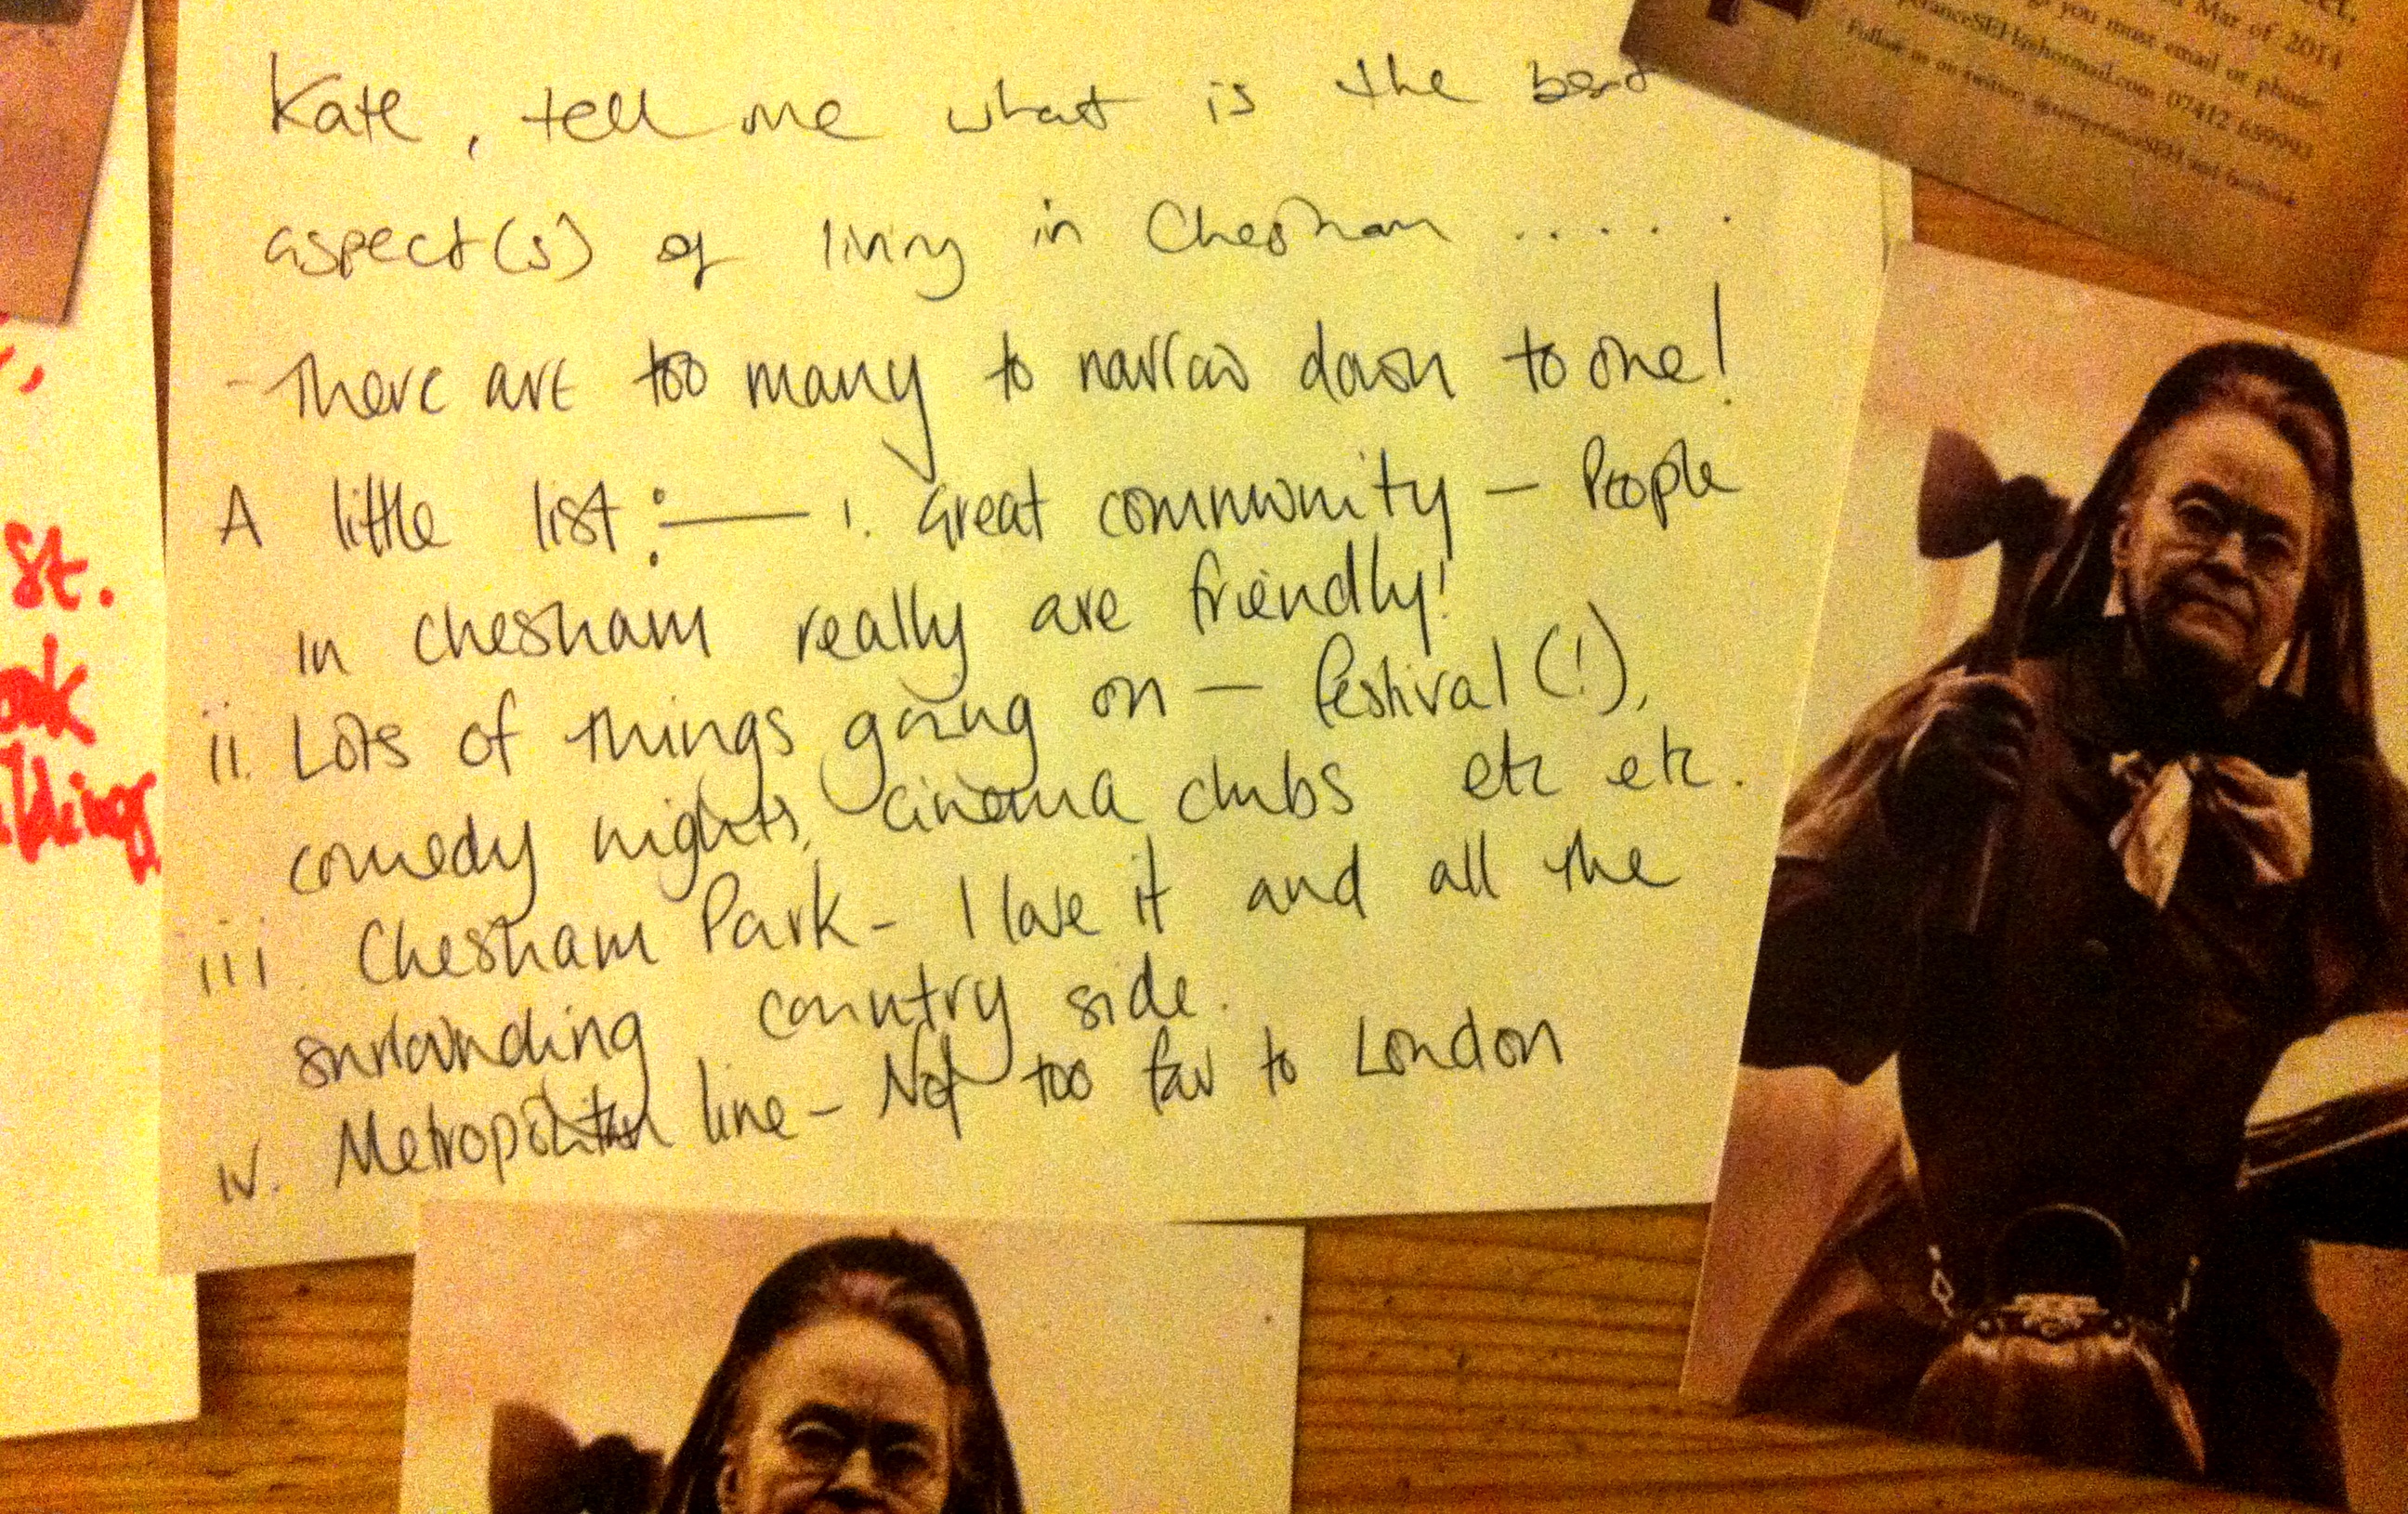 Kate, tell me what is the best
aspect(s) of living in Chesham .....
- There are too many to narrow down to one!
A little list :— i. Great community — People
in Chesham really are friendly!
ii. Lots of things going on — festival (!),
comedy nights, cinema clubs etc etc.
iii. Chesham Park - I love it and all the
surrounding country side.
iv. Metropolitan line - Not too far to London
Mar of 2014
you must email or phone
07412 659993
Follow us on twitter and facebook
st.